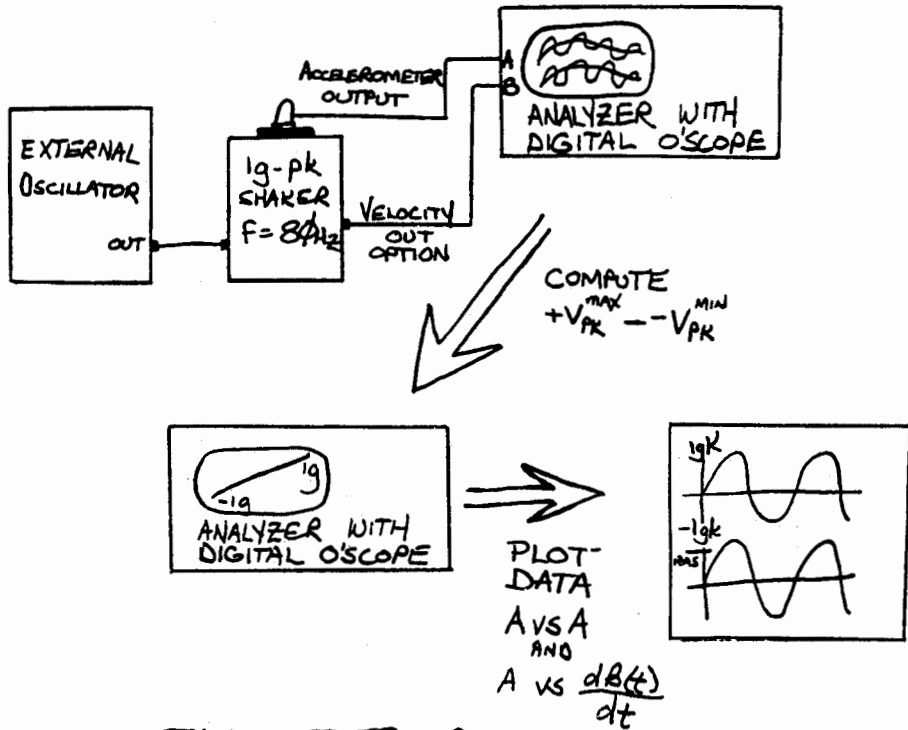 EXTERNAL
OSCILLATOR
OUT
ACCELEROMETER
OUTPUT
1g-pk
SHAKER
F = 80Hz
VELOCITY
OUT
OPTION
A
B
ANALYZER WITH
DIGITAL O'SCOPE
COMPUTE
+V MAX PK - -V MIN PK
1g
-1g
ANALYZER WITH
DIGITAL O'SCOPE
PLOT-
DATA
A VS A
AND
A VS dB(t)
dt
1gK
-1gK